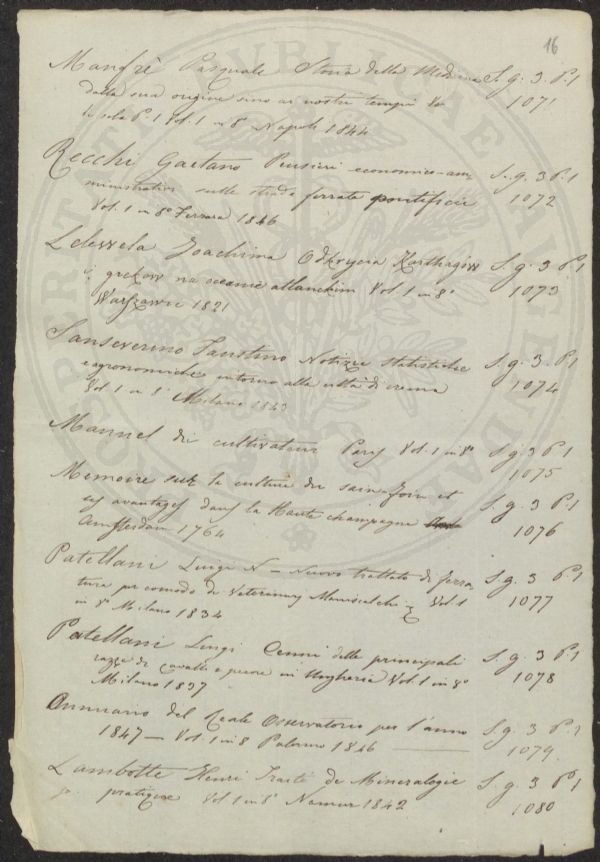 16
Manfrè Pasquale Storia della Medicina S. g. 3 P. 1
dalla sua origine sino ai nostri tempi 1071
P. 1 Vol. 1 in 8° Napoli 1844
Recchi Gaetano Pensieri economico-am S. g. 3 P. 1
ministrativi sulle strade ferrate pontificie 1072
Vol. 1 in 8° Ferrara 1846
Lelewela Joachima Odkrycia Karthagiów S. g. 3 P. 1
i grekow na oceanie atlanckim Vol. 1 in 8° 1073
Warszawie 1821
Sanseverino Faustino Notizie statistiche S. g. 3. P. 1
e agronomiche intorno alla città di crema 1074
Vol. 1 in 8° Milano 1843
Manuel du cultivateur Paris Vol. 1 in 8° S. g. 3 P. 1
1075
Memoire sur la culture du sain-foin et S. g. 3 P. 1
ses avantages dans la Haute champagne 1076
Amsterdam 1764
Patellani Luigi N – Nuovo trattato di ferra S. g. 3 P. 1
tura per comodo de Veterinarj Maniscalchi Vol. 1 1077
in 8° Milano 1834
Patellani Luigi Cenni delle principali S. g. 3 P. 1
razze di cavalli e pecore in Ungheria Vol. 1 in 8° 1078
Milano 1837
Annuario del Reale Osservatorio per l'anno S. g. 3 P. 1
1847 — Vol. 1 in 8 Palermo 1846 1079
Lambotte Henri Traité de Mineralogie S. g. 3 P. 1
pratique Vol. 1 in 8° Namur 1842 1080